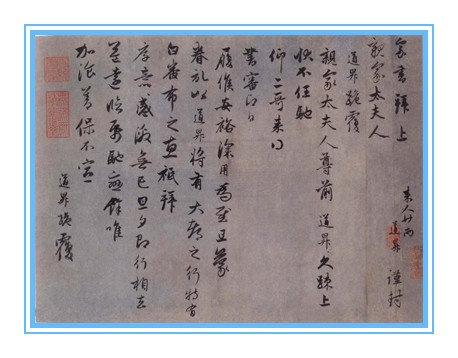 家書拜上
親家太夫人
道昇 謹封
道昇跪覆
親家太夫人尊前 道昇久疎上
狀不任馳
仰二哥来得
書審即日
履候安裕深用為慰且蒙
眷記以道昇將有大都之行特有
白番布之惠祗拜
厚意感激無已旦夕即行相去
益遠臨馳戀餘唯
加飡善保不宣
道昇跪覆